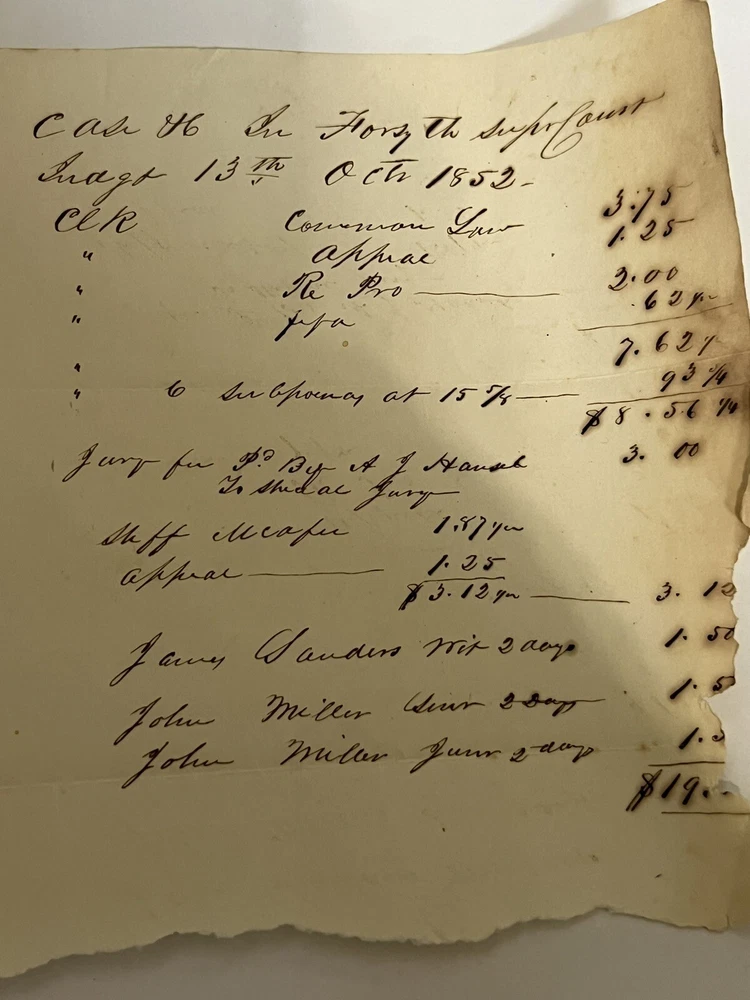 Case 46 In Forsyth supr Court
Judgt 13th Octr 1852-
Clk Common Law 3.75
" appeal 1.25
" Re Pro 2.00
" fifa .62½
7.62½
"
" 6 Subpoenas at 15 5/8 93 3/4
$8.56 1/4
Jury fee Pd By A J Hansel 3.00
To Shedal Jury
Shff McAfee 1.87½
appeal 1.25
$3.12½ 3.12
James Sanders Wit 2 days 1.50
John Miller Senr 2 Days 1.5
John Miller Junr 2 days 1.5
$19.